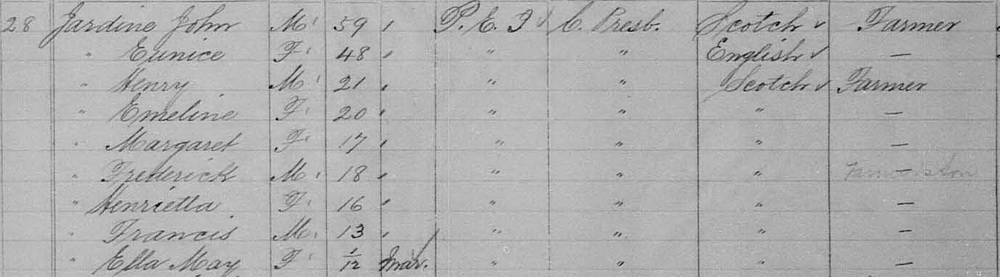 28 Jardine John M 59 P. E. I C. Presb. Scotch Farmer
" Eunice F 48 " " " English —
" Henry M 21 " " " Scotch Farmer
" Emeline F 20 " " " " —
" Margaret F 17 " " " " —
" Frederick M 18 " " " "
" Henrietta F 16 " " " " —
" Francis M 13 " " " " —
" Ella May F 1/12 Mar. " " " —